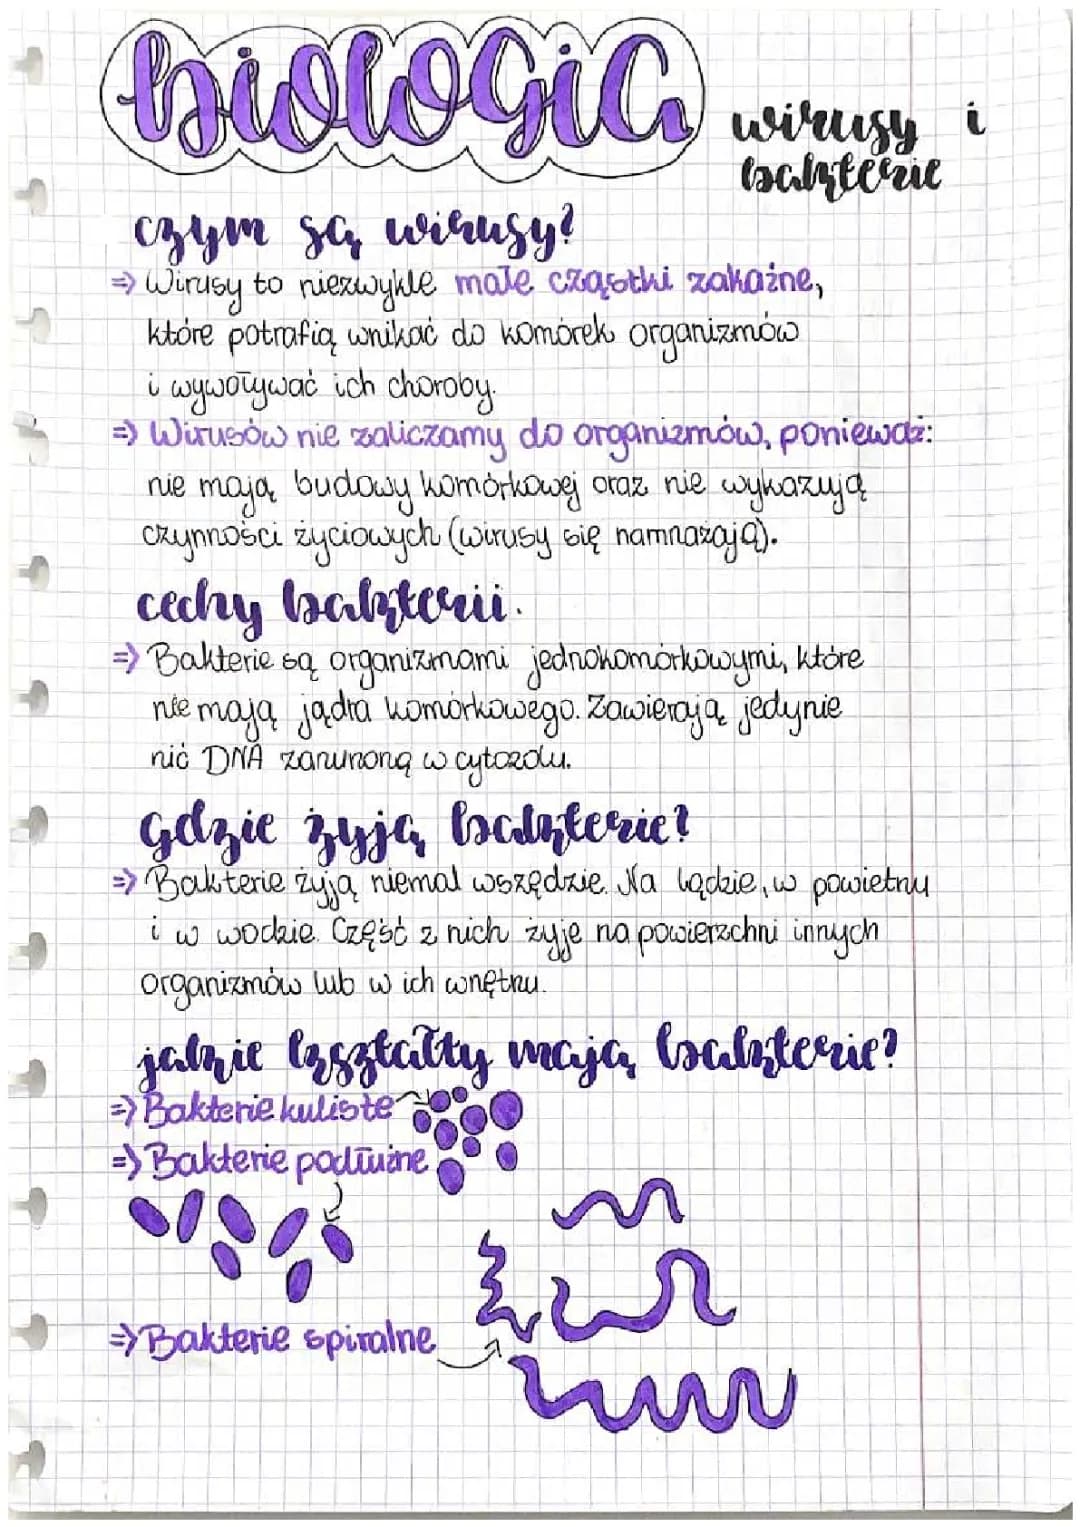 biologia
wirusy i
bakterie
czym są wirusy?
=> Wirusy to niezwykle małe cząstki zakaźne,
które potrafią wnikać do komórek organizmów
i wywoływać ich choroby.
=> Wirusów nie zaliczamy do organizmów, ponieważ:
nie mają budowy komórkowej oraz nie wykazują
czynności życiowych (wirusy się namnażają).
cechy bakterii.
=> Bakterie są organizmami jednokomórkowymi, które
nie mają jądra komórkowego. Zawierają jedynie
nić DNA zanurzoną w cytozolu.
gdzie żyją bakterie?
=> Bakterie żyją niemal wszędzie. Na lądzie, w powietrzu
i w wodzie. Część z nich żyje na powierzchni innych
organizmów lub w ich wnętrzu.
jakie kształty mają bakterie?
=> Bakterie kuliste
=> Bakterie podłużne
=> Bakterie spiralne